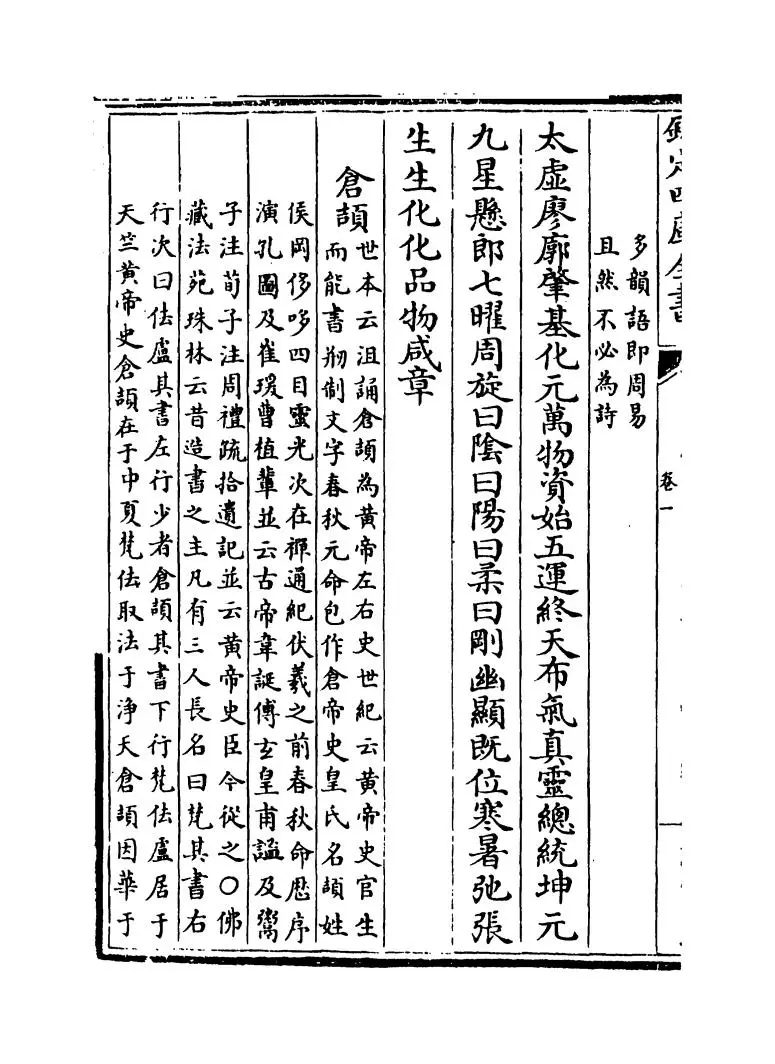 欽定四庫全書
卷一
多韻語即周易
且然不必為詩
太虛廖廓肇基化元萬物資始五運終天布氣真靈總統坤元
九星懸郎七曜周旋曰陰曰陽曰柔曰剛幽顯既位寒暑弛張
生生化化品物咸章
倉頡
世本云沮誦倉頡為黄帝左右史世紀云黄帝史官生
而能書刱制文字春秋元命包作倉帝史皇氏名頡姓
侯岡侈哆四目靈光次在禪通紀伏羲之前春秋命厯序
演孔圖及崔瑗曹植輩並云古帝韋誕傅玄皇甫謐及鬻
子注荀子注周禮疏拾遺記並云黄帝史臣今從之○佛
藏法苑珠林云昔造書之主凡有三人長名曰梵其書右
行次曰佉盧其書左行少者倉頡其書下行梵佉盧居于
天竺黄帝史倉頡在于中夏梵佉取法于浄天倉頡因華于